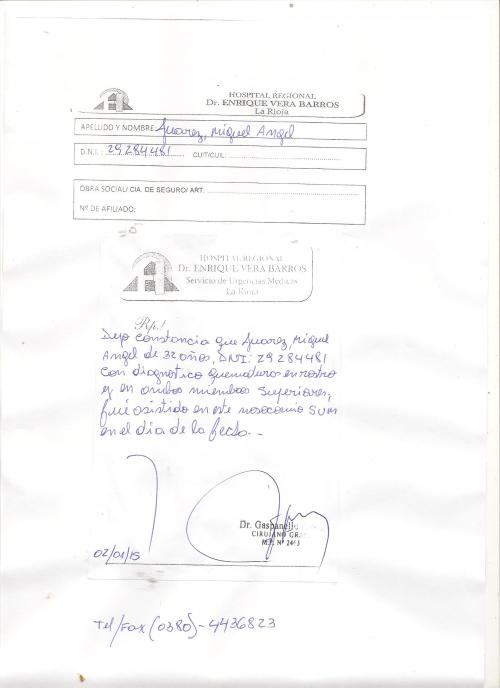 HOSPITAL REGIONAL
Dr. ENRIQUE VERA BARROS
La Rioja
APELLIDO Y NOMBRE Juarez, Miguel Angel
D.N.I.: 29 284481 CUIT/CUIL:
OBRA SOCIAL/ CIA. DE SEGURO/ ART:
Nº DE AFILIADO:
HOSPITAL REGIONAL
Dr. ENRIQUE VERA BARROS
Servicio de Urgencias Medicas
La Rioja
Rp./
Dejo constancia que Juarez, Miguel
Angel de 32 años, DNI: 29 284481
con diagnostico quemaduras en rostro
y en ambos miembros superiores,
fué asistido en este nosocomio SUM
en el día de la fecha.-
Dr. Gaspanello
CIRUJANO GRAL.
M.P. Nº 2413
02/01/15
Tel/Fax (0380)-4436823